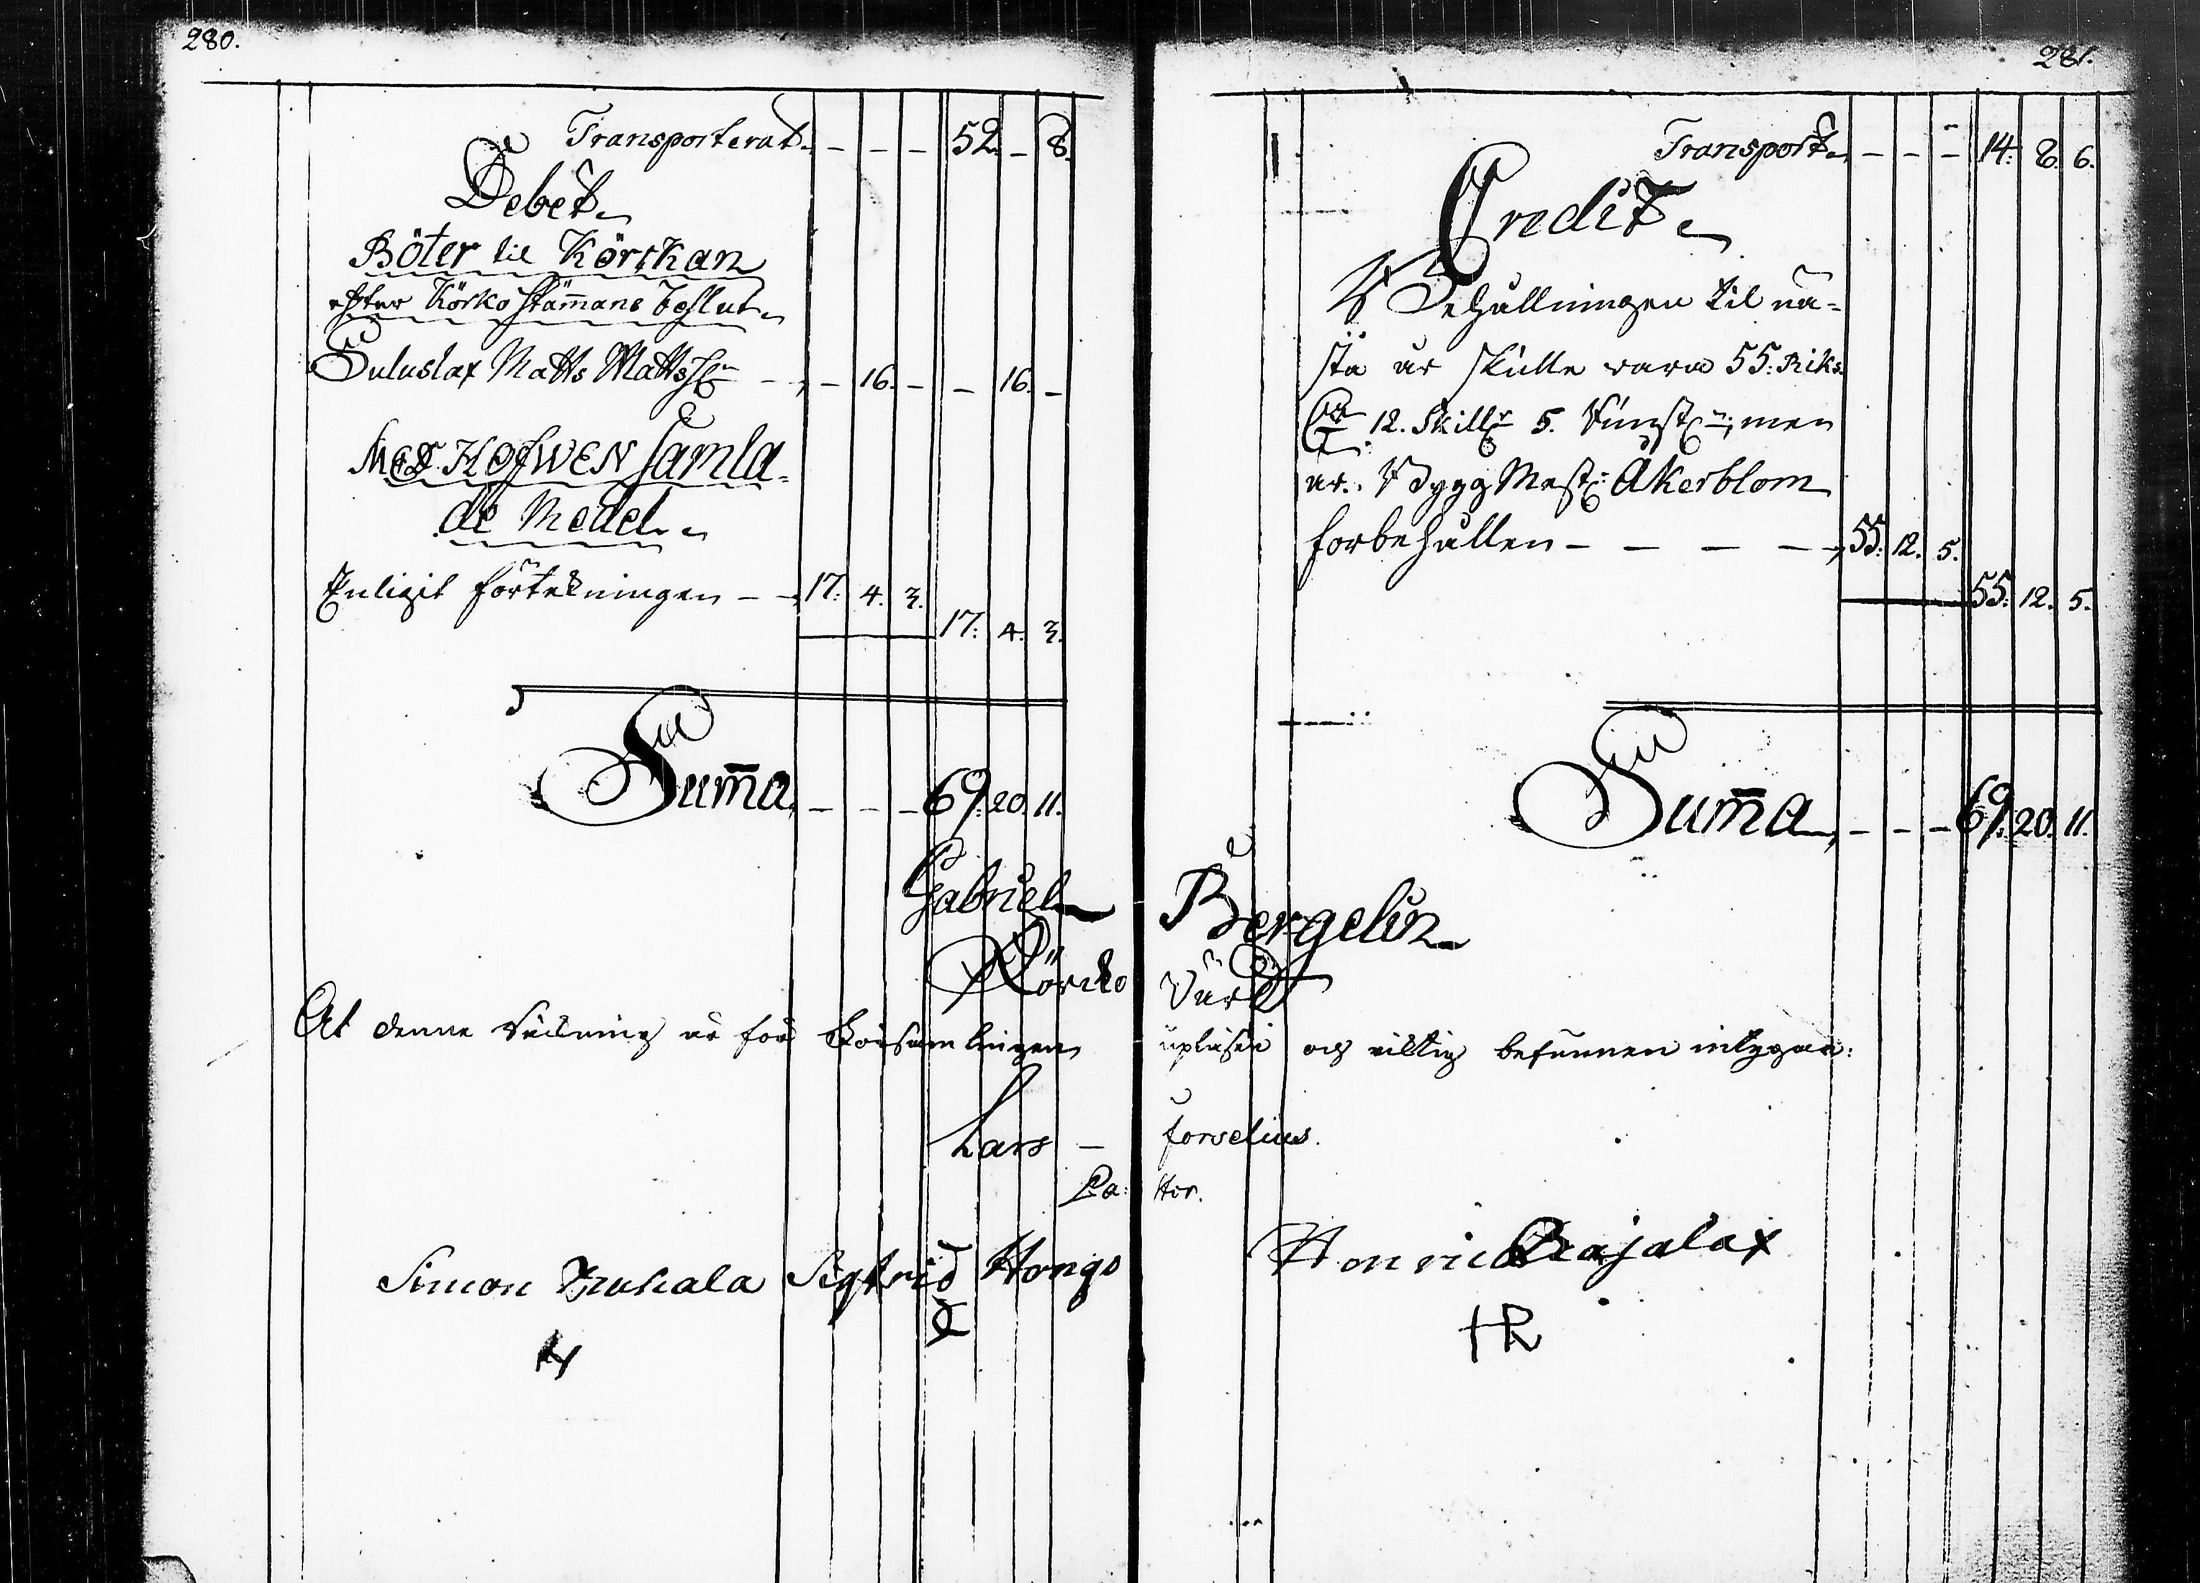 280.
Transporterat - - - 52. - 8.
Debet
Böter til Körckan
efter Körko Stämans beslut
Suluslax Matts Mattss - 16. - - 16. -
Med Hofwen Samla-
de Medel
Enligit förtekningen - 17. 4. 3.
17. 4. 3.
Suma - - - 69. 20. 11.
281.
Transport - - - 14. 8. 6.
Credit
Behållningen til nä-
sta år skulle vara 55: Riks
12. Skill 5. men
är Bygg Mest: Åkerblom
forbehållen - - - - 55. 12. 5.
55. 12. 5.
Suma - - - 69. 20. 11.
Gabriel Bergelin
Körcko Värd
At denne räkning är för Församlingen upläsen och richtig befunnen intygar:
Lars - Forselius.
Pa: stor.
Simon Sigfrid Hongo Henric Rajalax
HR